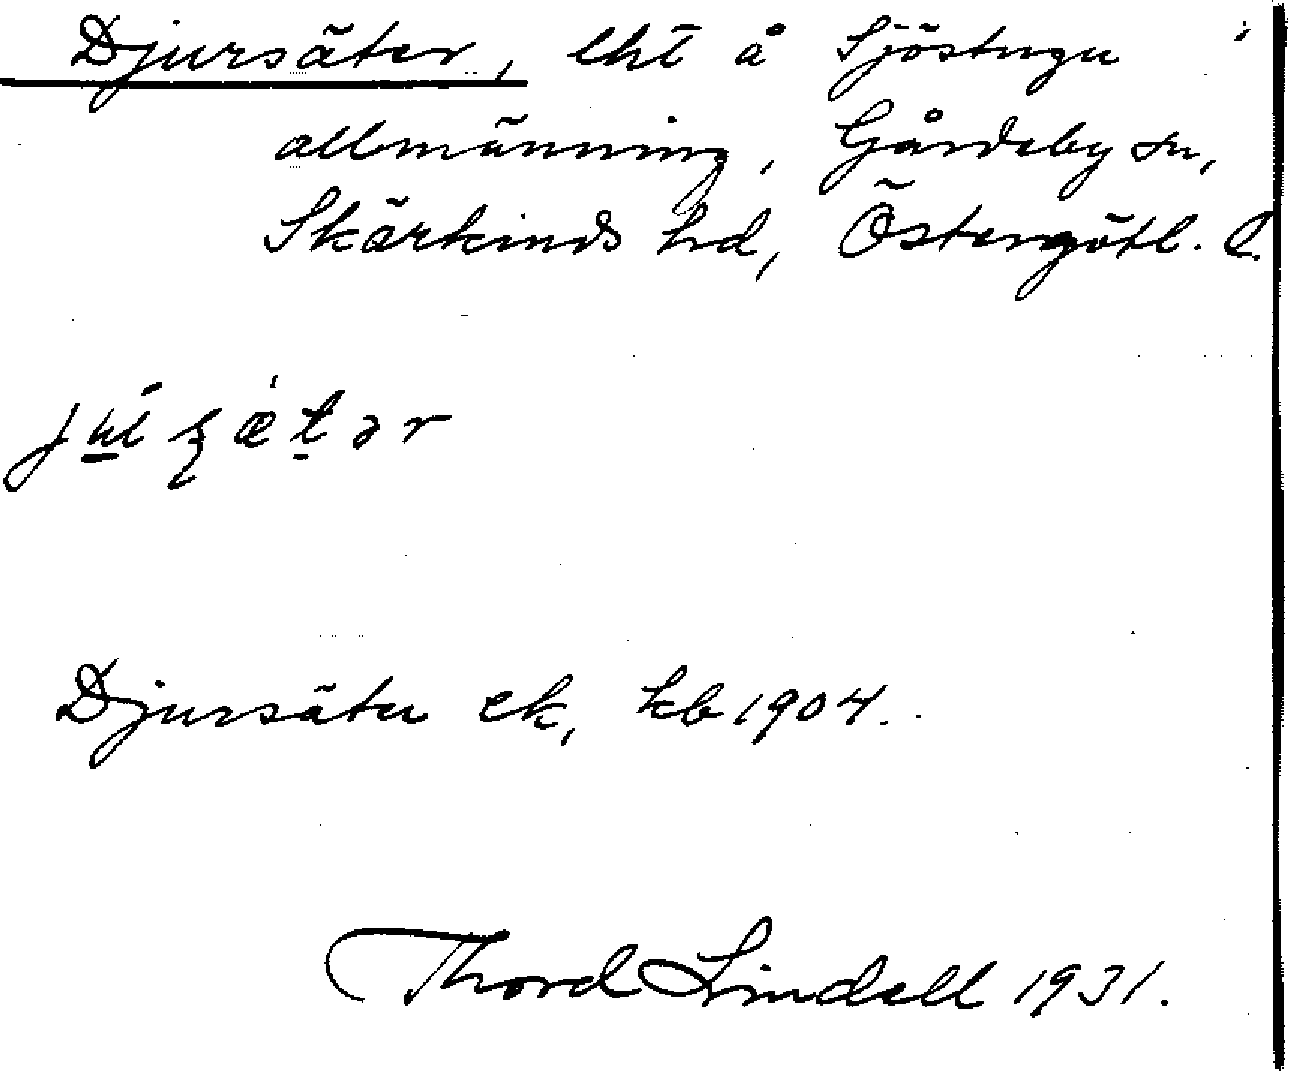 Djursäter, lht å Sjöstugu
allmänning, Gårdeby sn,
Skärkinds hd, Östergötl. l.
Djursäter ek, kb 1904.
Thord Lindell 1931.